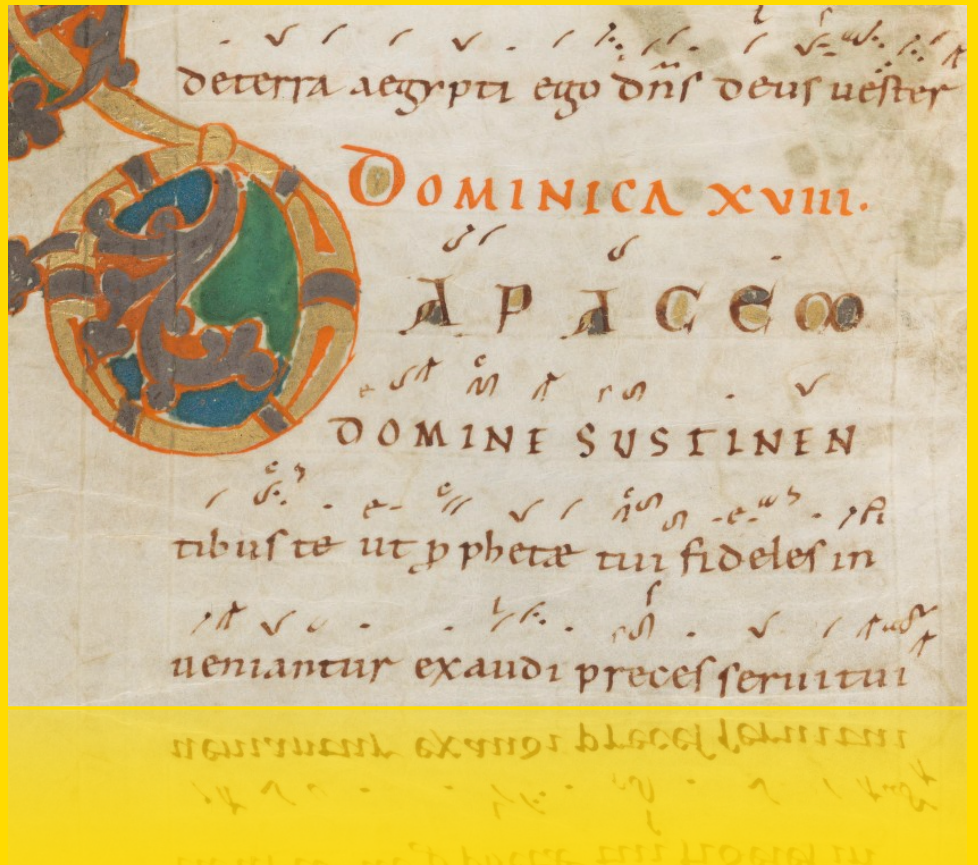 deterra aegypti ego dn̄s deus uester
DOMINICA XVIII.
DA PACEM
DOMINE SUSTINEN
tibus te ut ꝓphetæ tui fideles in
ueniantur exaudi preces serui tui